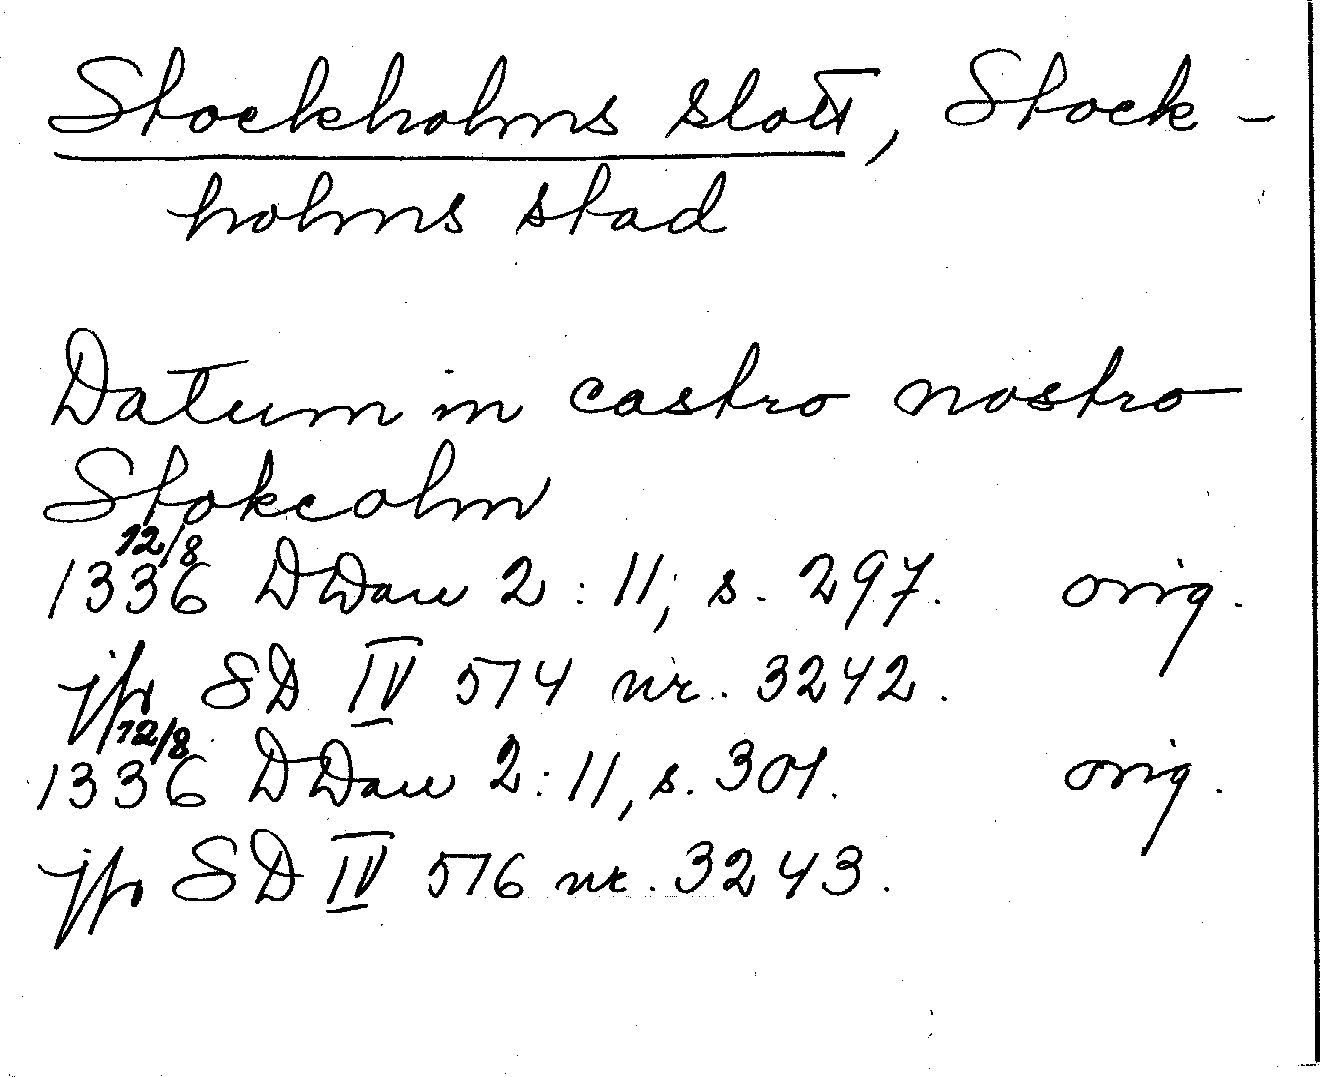 Stockholms slott, Stock-
holms stad
Datum in castro nostro
Stokcolm
12/8
1336 DDan 2:11, s. 297. orig.
jfr SD IV 574 nr. 3242.
12/8
1336 DDan 2:11, s. 301. orig.
jfr SD IV 576 nr. 3243.